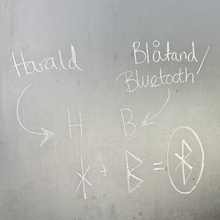 Harald
Blåtand/
Bluetooth
H B
ᚼ + ᛒ =